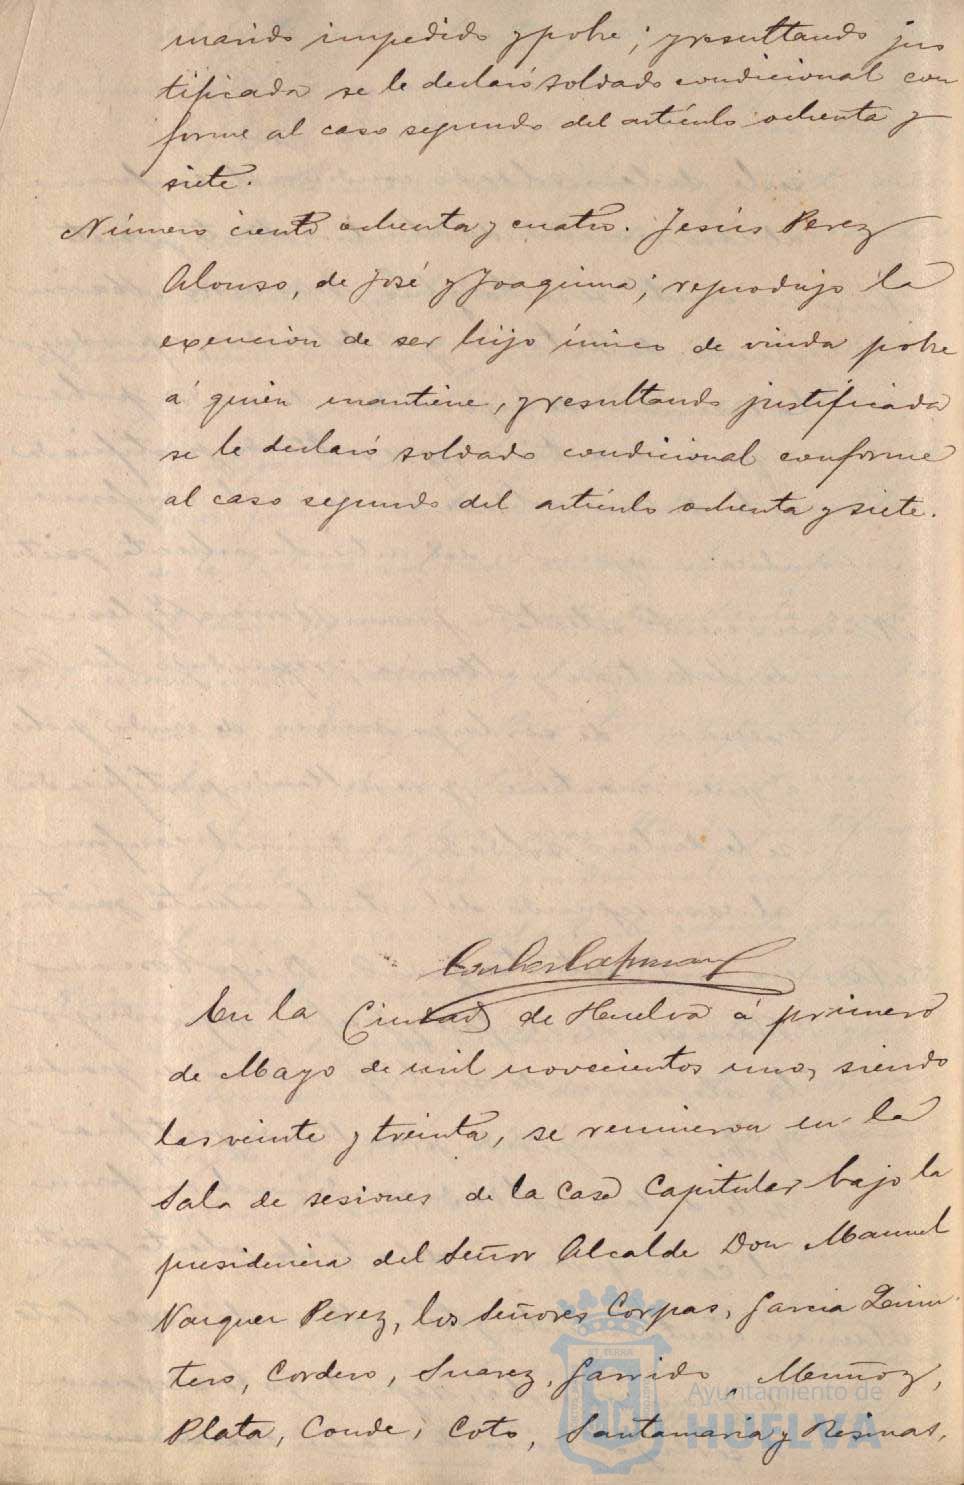 marido impedido y pobre; y resultando jus
tificada se le declaró soldado condicional con
forme al caso segundo del artículo ochenta y
siete.
Número ciento ochenta y cuatro. Jesús Perez
Alonso, de José y Joaquina; reprodujo la
exención de ser hijo único de viuda pobre
á quien mantiene, y resultando justificada
se le declaró soldado condicional conforme
al caso segundo del artículo ochenta y siete.
En la Ciudad de Huelva á primero
de Mayo de mil novecientos uno, siendo
las veinte y treinta, se reunieron en la
Sala de sesiones de la Casa Capitular bajo la
presidencia del Señor Alcalde Don Manuel
Vazquez Perez, los Señores Corpas, Garcia Quin
tero, Cordero, Suarez, Garrido, Muñoz,
Plata, Conde, Coto, Santamaria y Resinas,
Ayuntamiento de
HUELVA